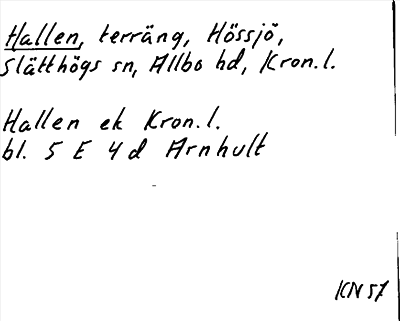 Hallen, terräng, Hössjö,
Slätthögs sn, Allbo hd, Kron. l.
Hallen ek Kron. l.
bl. 5 E 4 d Arnhult
KN 57